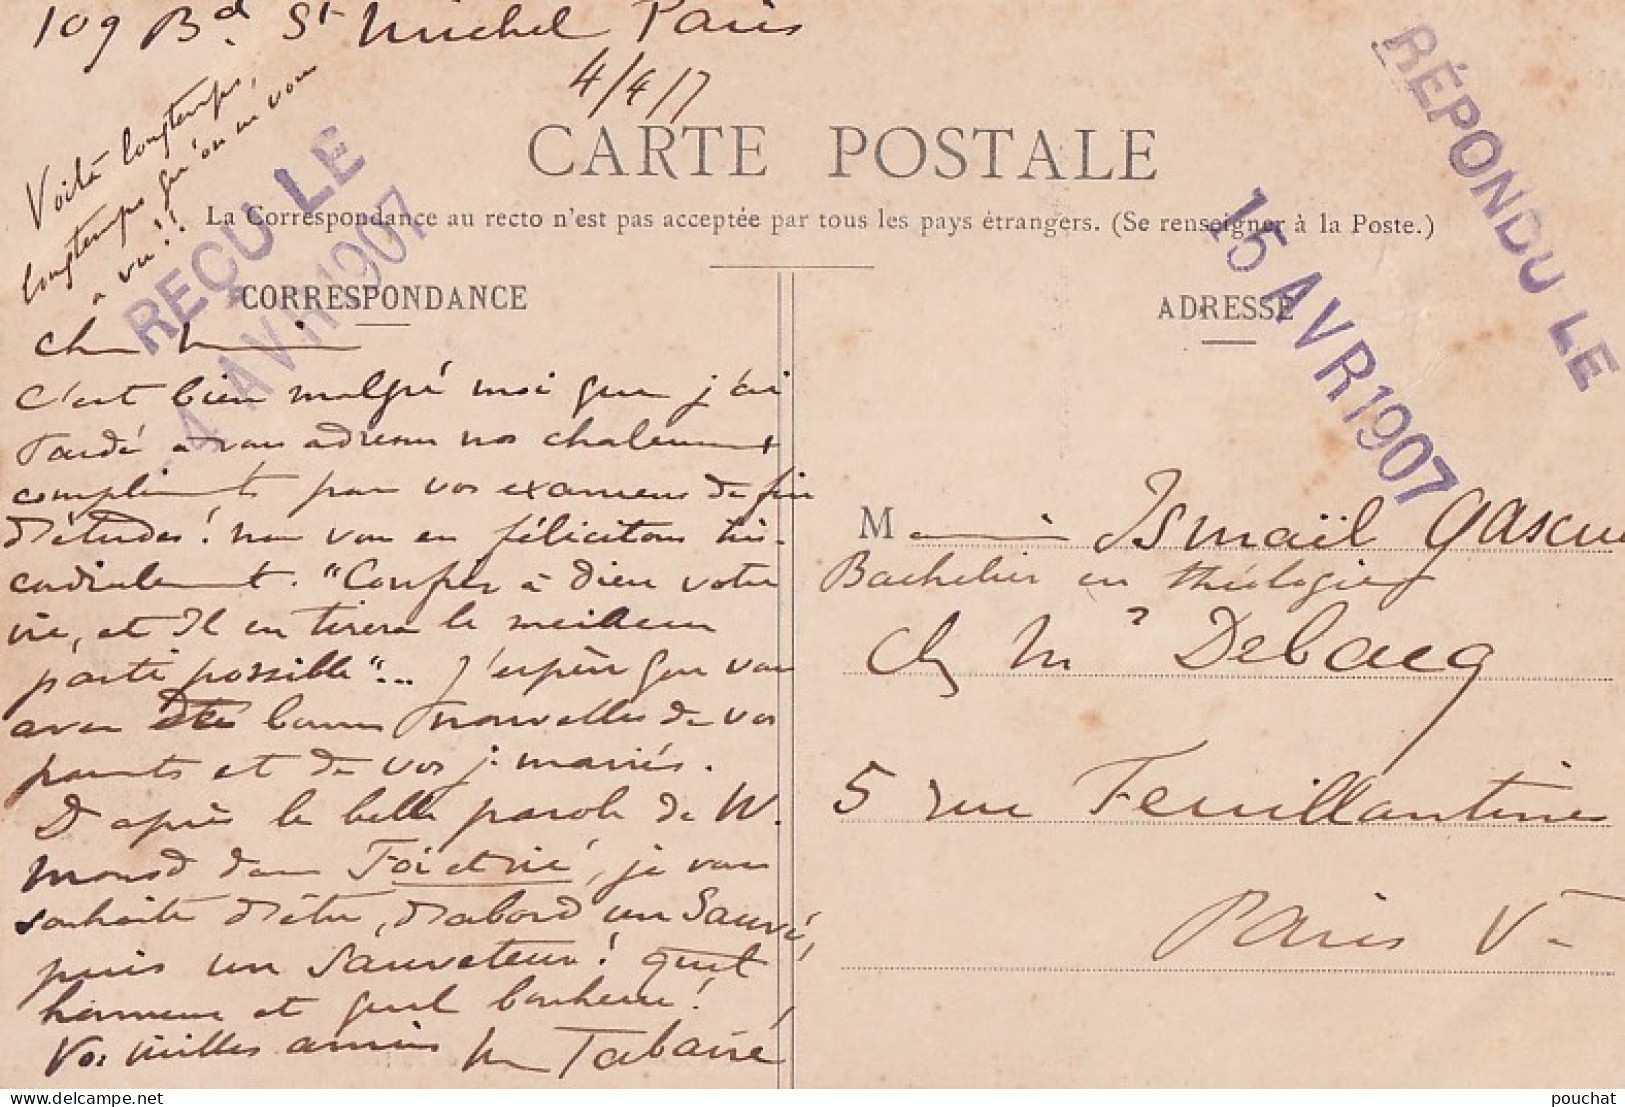 109 Bd. St Michel Paris
4/4/7
Voilà longtemps,
longtemps qu'on ne vous
a vu!!
REÇU LE
4 AVR 1907
RÉPONDU LE
15 AVR 1907
CARTE POSTALE
La Correspondance au recto n'est pas acceptée par tous les pays étrangers. (Se renseigner à la Poste.)
CORRESPONDANCE
Cher
C'est bien malgré moi que j'ai
tardé à vous adresser nos chaleureux
compliments pour vos examens de fin
d'études! nous vous en félicitons très
cordialement. "Confiez à Dieu votre
vie, et Il en tirera le meilleur
parti possible"... J'espère que vous
avez de bonnes nouvelles de vos
parents et de vos j. mariés.
D'après la belle parole de W.
Monod dans Foi et vie, je vous
souhaite d'être, d'abord un Sauvé,
puis un Sauveteur! quel
honneur et quel bonheur!
Vos vieilles amies M Tabairé
ADRESSE
M Ismaël Gascu
Bachelier en théologie
ch Mr Debacq
5 rue Feuillantines
Paris V
pouchat